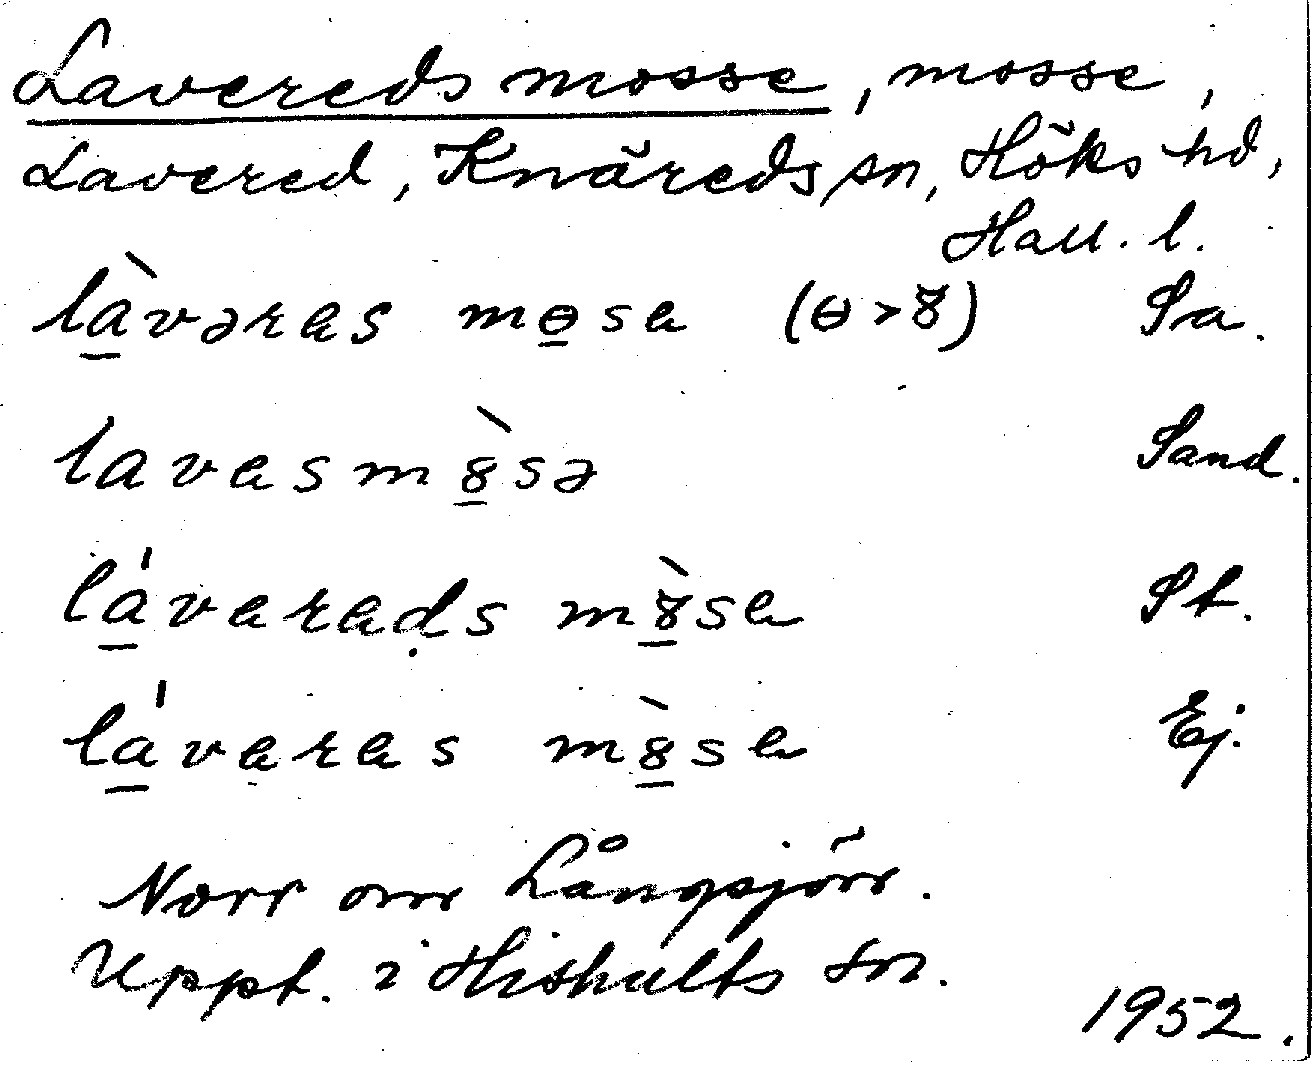 Lavereds mosse, mosse,
Lavered, Knäreds sn, Höks hd,
Hall. l.
là̱vəras mɵ̱sa (ɵ > 8) Sa.
lavasm8̱̀sə Sand.
lá̱varads m8̱̀sa St.
lá̱varas m8̱̀sa Ej.
Norr om Långsjön.
Uppt. i Hishults sn.
1952.